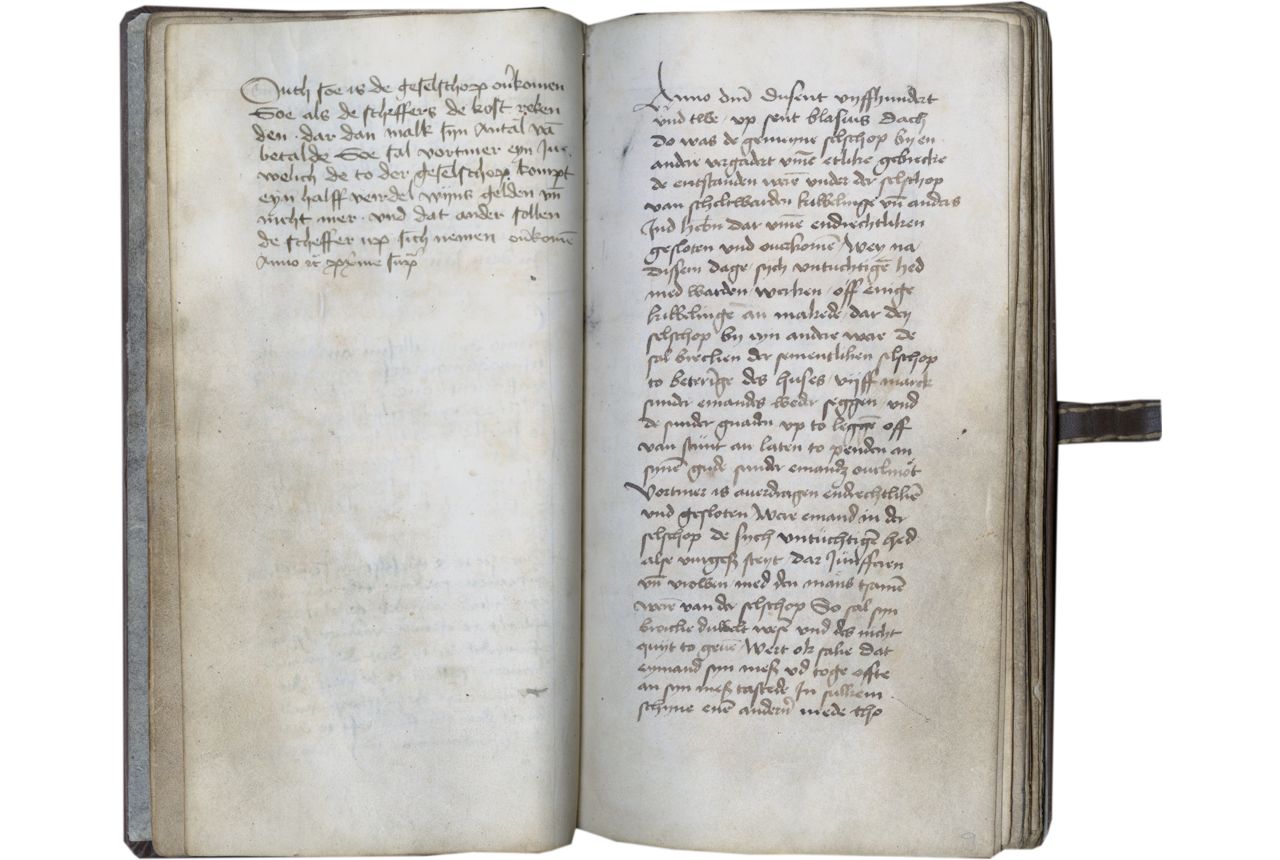 Ouch soe is de geselschop ou̅komen
Soe als de scheffers de kost reken
den · dar dan malk sijn Antal va̅
betalde Soe sal vortmer eyn Ju
welich de to der geselschop kompt
eyn halff veirdel wijns gelden vn̅
nicht mer · vnd dat ander sollen
de scheffer up sich nemen ou̅kome̅
Anno
Anno dm̅ dusent vyffhundert
vnd twe / vp sent blasius dach
Do was de gemeyne selschop by en
ander vergadert vm̅e etlike gebrecke
de entstanden were̅ vnder der selschop
van scheltwarden kibbelinge vn̅ anders
Ind hebn̅ dar vm̅e endrechtliken
gesloten vnd ouerkome̅ / Wey na
dissem dage sych vntuchtige̅ hed
med warden werken off enige
kibbelinge an makede dar dey
selschop by eyn ander were de
sal brecken der sementliken selschop
to beteri̅ge des huses / vyff marck
sunder emandes weder seggen / vnd
de sunder gnaden vp to legge̅ off
van stunt an laten to penden an
syne̅ gude sunder emandz ouelmot
Vortmer is auerdragen endrechtlike̅
vnd gesloten / Were emand in der
selschop de sych vntuchtige̅ hed
alse vurges steyt / dar Junfferen
vn̅ vrowen med den mans tsame̅
were̅ van der selschop So sal syn
broicke dubbelt wesen vnd des nicht
quyt to geue̅ / Wert ok sake dat
eymand syn mess vd toge offte
an syn mess tastede In sulkem
schyne ene̅ ander̅n mede tho